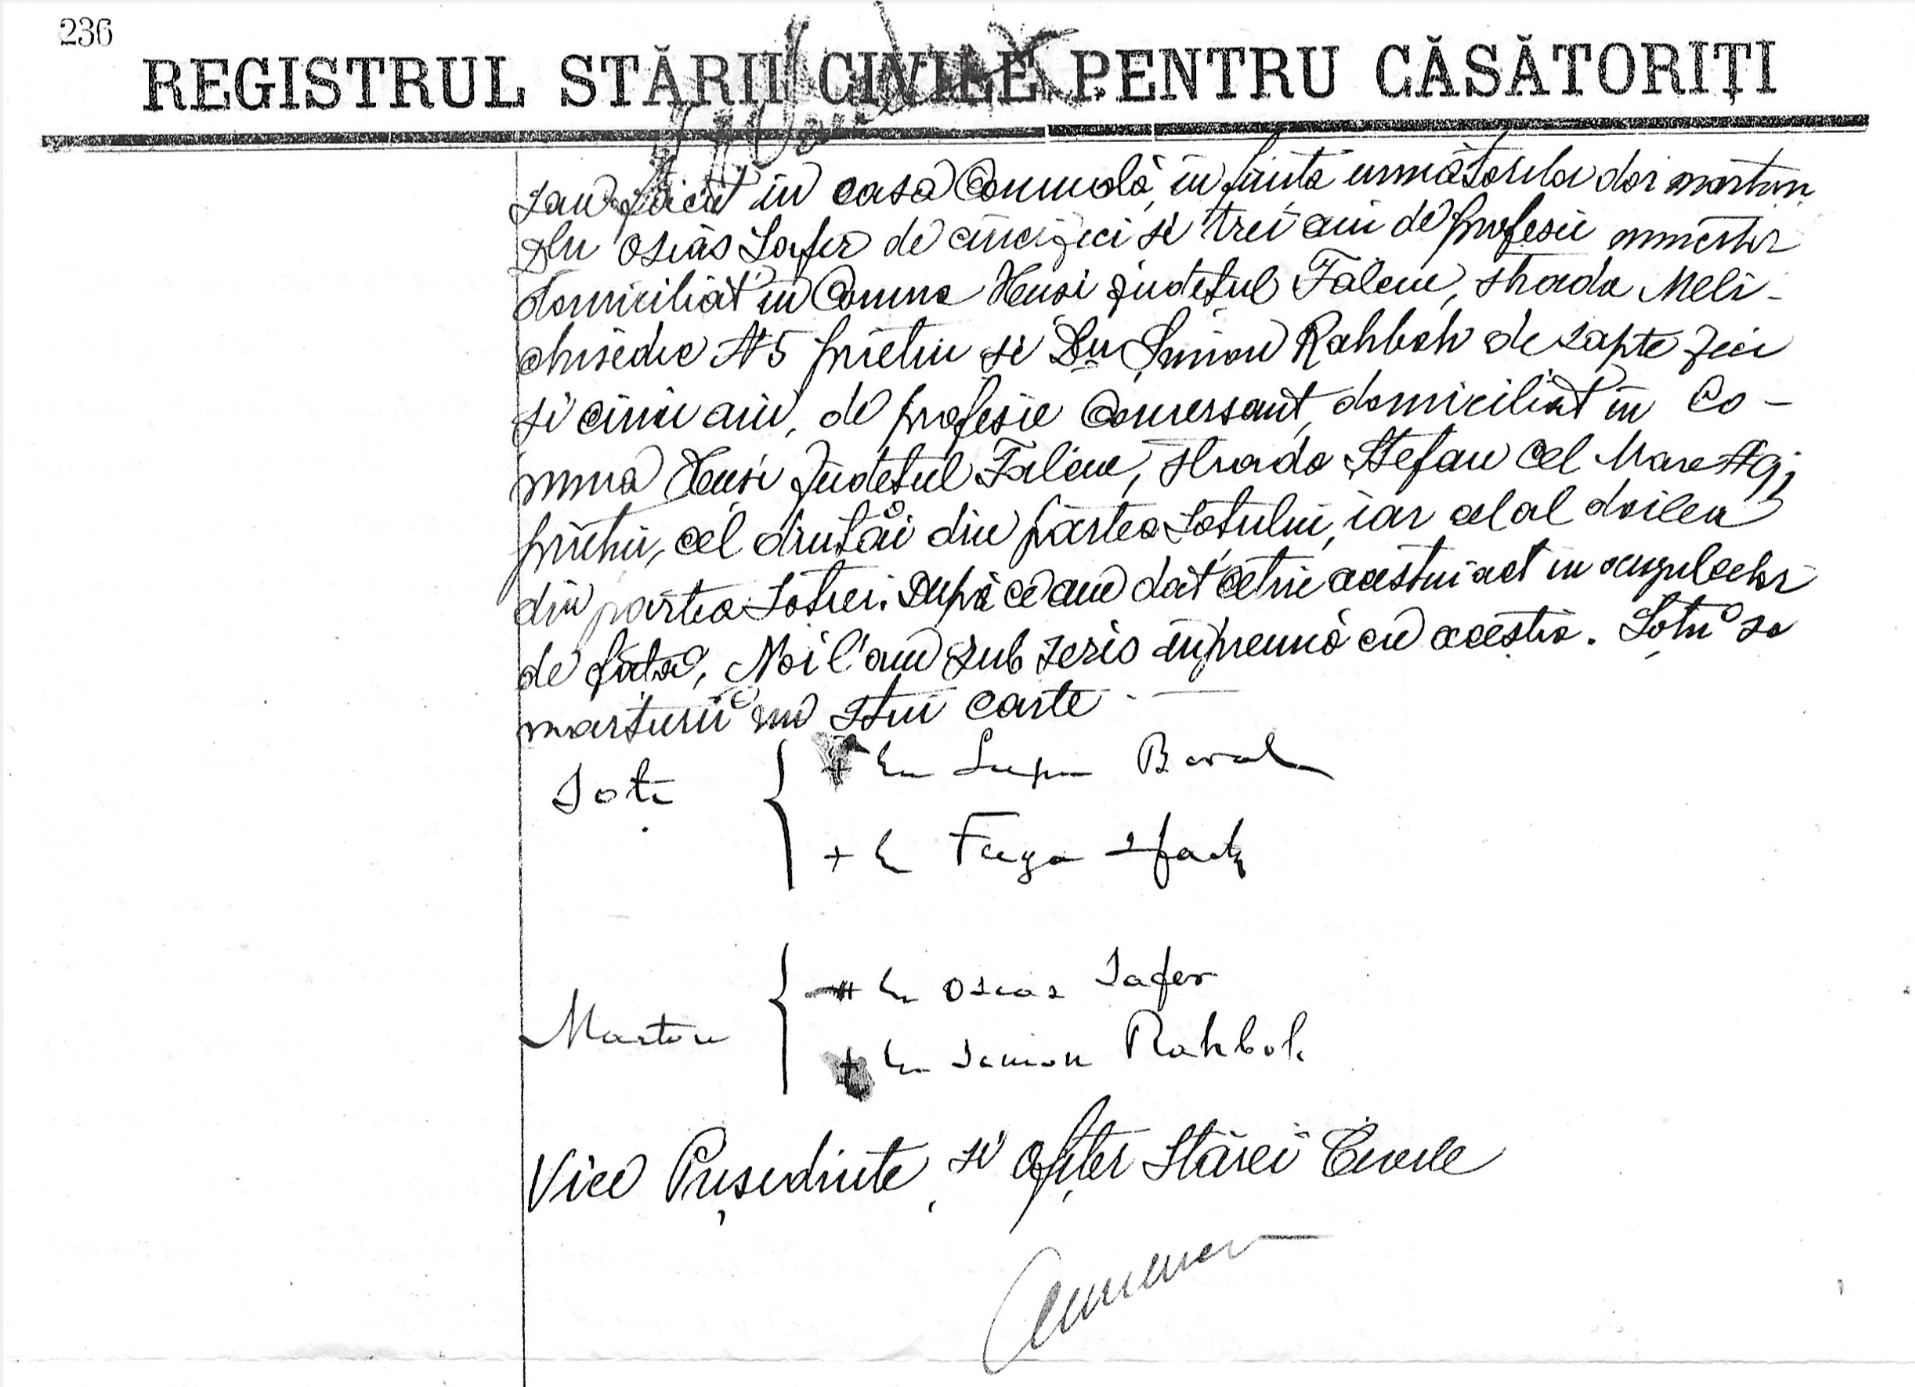 236
REGISTRUL STĂRII CIVILE PENTRU CĂSĂTORIȚI
sau făcut in casa Comunală, in fiinta următorilor doi marturi
Dlu Osias Safer de cincizeci si trei ani de profesie
domiciliat in Comuna Husi judetul Fălciu, strada Meli-
chisedec № 5 prieten si Dlu Simion Rahboh de sapte zeci
si cinci ani, de profesie Comersant, domiciliat in Co-
muna Husi judetul Falciu, strada Ștefan cel Mare № 9;
prieten, cel dintăi din partea Sotului, iar cel al doilea
din partea Sotiei. După ce am dat cetire acestui act in
de fată, Noi l'am sub scris inpreună cu acestia. Soții sa
marturii nu stiu carte
Soti { + Eu Lupu Boral
+ Eu Feiga Ifack
Martori { + Eu Osias Safer
+ Eu Simion Rahboh
Vice Președinte, si Ofițer Stărei Civile